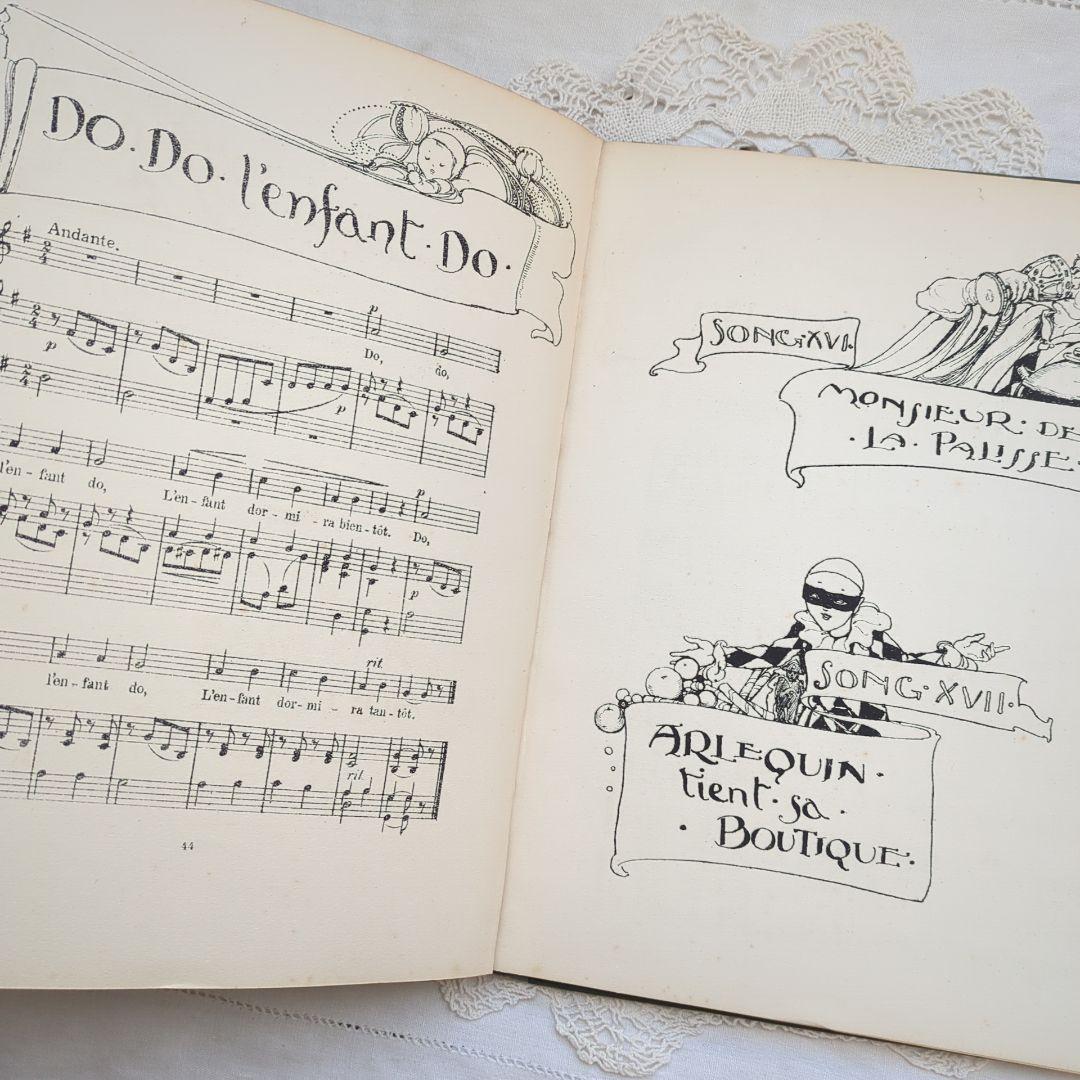 DO·DO·l'enfant·DO·
Andante.
2/4
p
2/4
p
p
Do, do,
2/4
p
l'en-fant do, L'en-fant dor-mi-ra bien-tôt. Do,
p
rit.
l'en-fant do, L'en-fant dor-mi-ra tan-tôt.
rit.
44
SONG·XVI·
MONSIEUR·DE
·LA·PALISSE·
SONG·XVII·
ARLEQUIN·
tient·sa·
·BOUTIQUE·